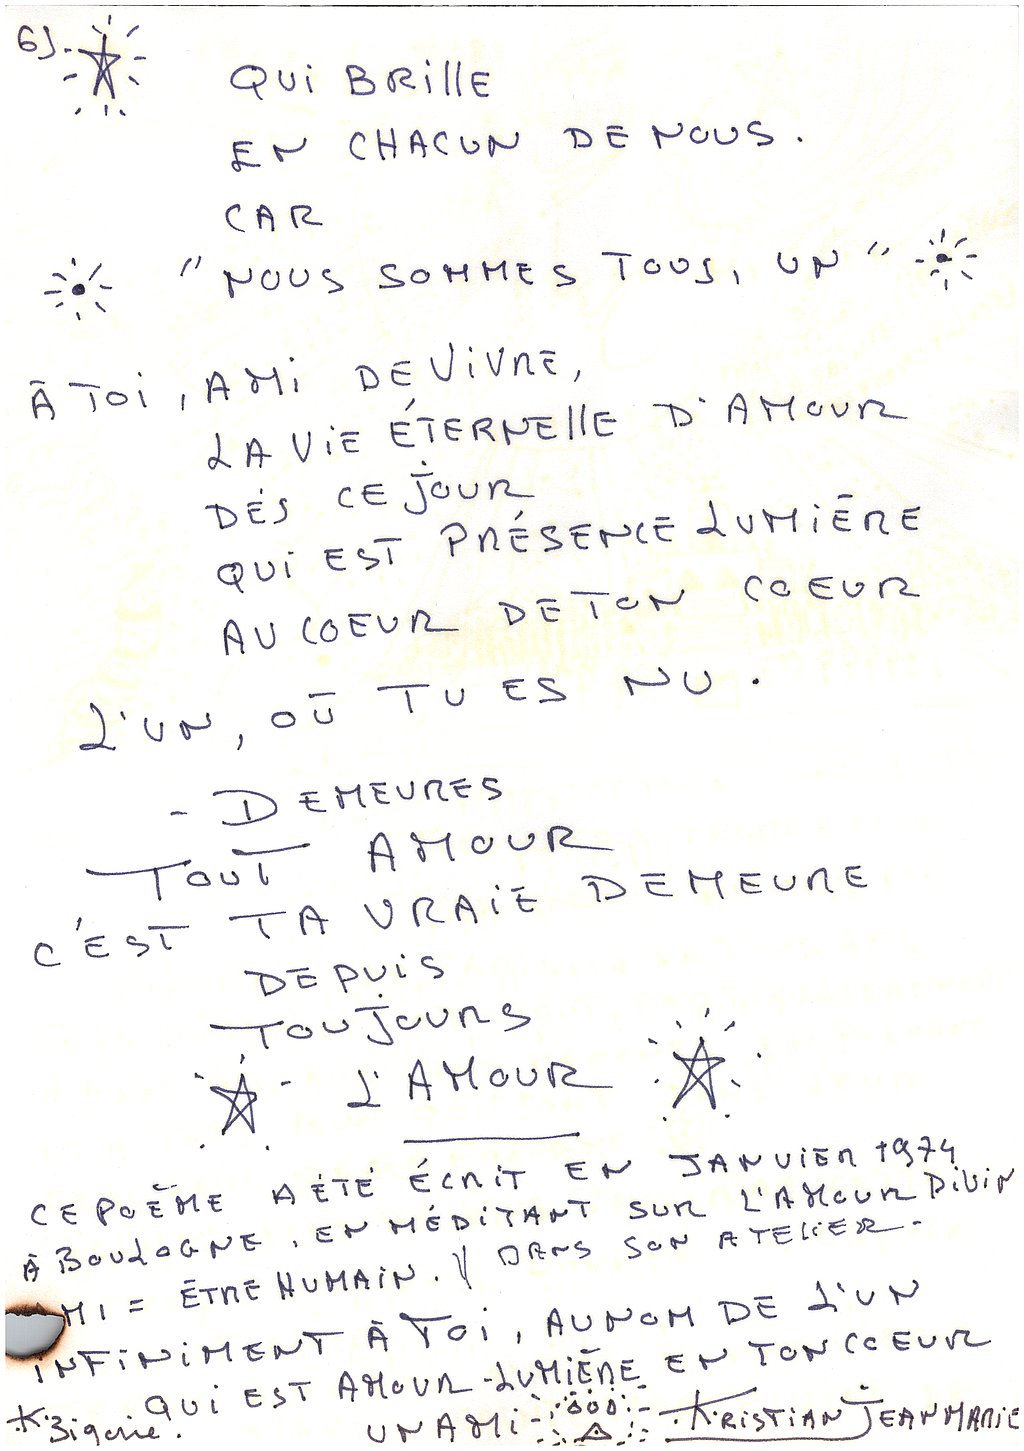 6).
QUI BRILLE
EN CHACUN DE NOUS.
CAR
"NOUS SOMMES TOUS, UN"
À TOI, AMI DE VIVRE,
LA VIE ÉTERNELLE D'AMOUR
DÉS CE JOUR
QUI EST PRÉSENCE LUMIÈRE
AU COEUR DE TON COEUR
L'UN, OÙ TU ES NU.
- DEMEURES
TOUT AMOUR
C'EST TA VRAIE DEMEURE
DEPUIS
TOUJOURS
L'AMOUR
CE POÈME A ÉTÉ ÉCRIT EN JANVIER 1974
À BOULOGNE, EN MÉDITANT SUR L'AMOUR DIVIN
AMI = ÊTRE HUMAIN. DANS SON ATELIER.
INFINIMENT À TOI, AU NOM DE L'UN
QUI EST AMOUR-LUMIÈRE EN TON COEUR
UN AMI KRISTIAN JEAN MARIE